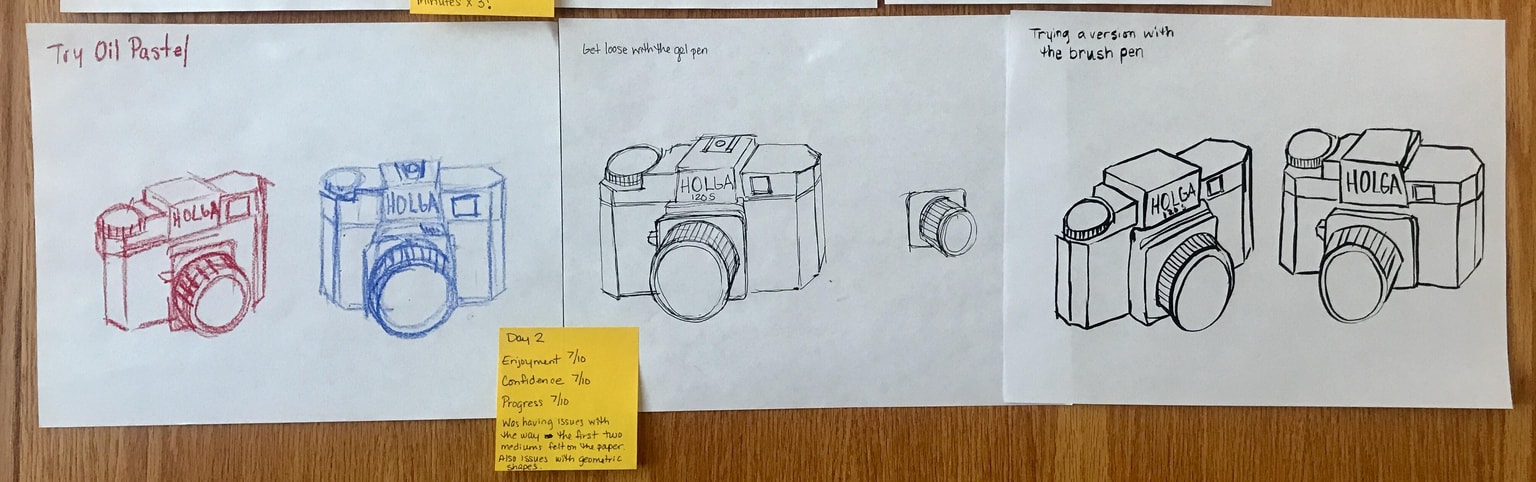 minutes x 3!
Try Oil Pastel
HOLGA
HOLGA
Get loose with the gel pen
HOLGA
120 S
Trying a version with
the brush pen
HOLGA
120 S
HOLGA
Day 2
Enjoyment 7/10
Confidence 7/10
Progress 7/10
Was having issues with
the way the first two
mediums felt on the paper.
Also issues with geometric
shapes.